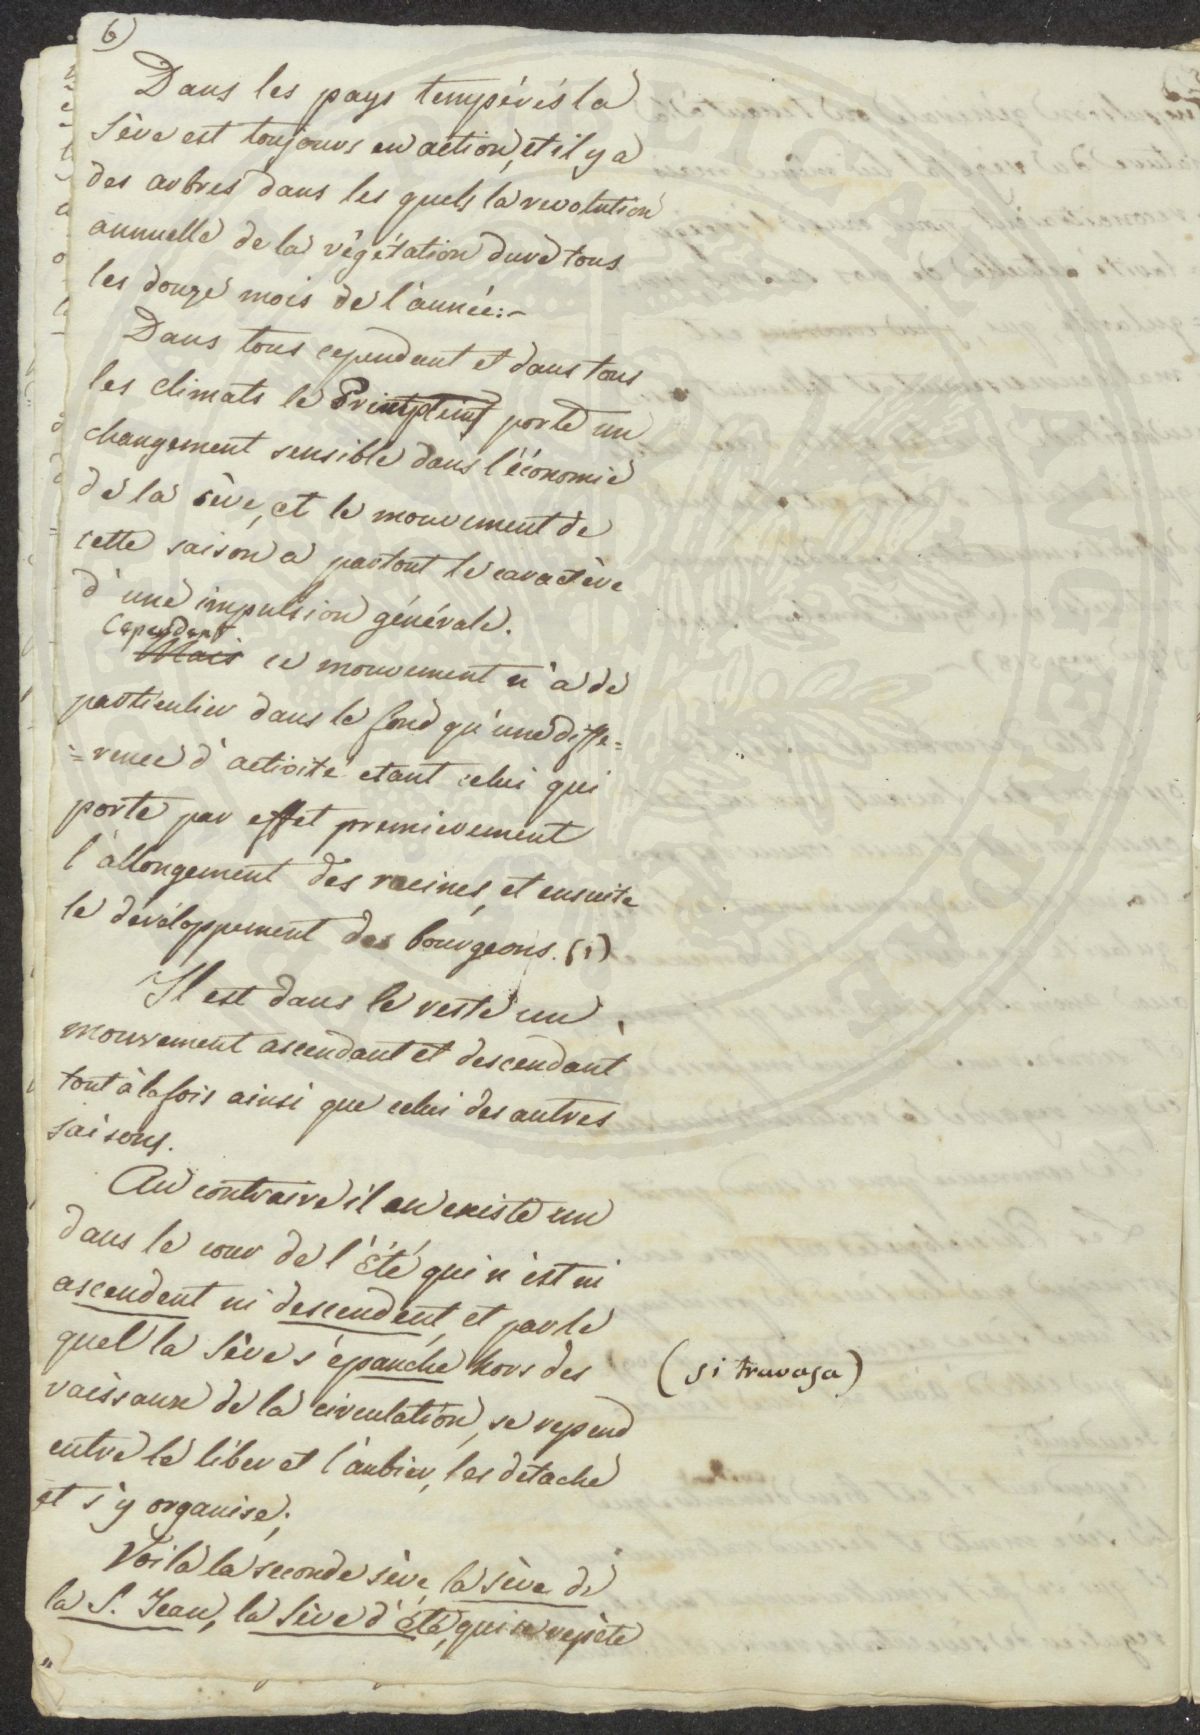 6)
Dans les pays tempérés la
Sève est toujours en action, et il y a
des arbres dans les quels la revolution
annuelle de la végétation dure tous
les douze mois de l'année:-
Dans tous cependant et dans tous
les climats le Printems porte un
changement sensible dans l'économie
de la sève, et le mouvement de
cette saison a partout le caractère
d'une impulsion générale.
Cependant
Mais ce mouvement n'a de
particulier dans le fond qu'une diffe=
=rence d'activité étant celui qui
porte par effet premierement
l'allongement des racines, et ensuite
le dévéloppement des bourgeons. (1)
Il est dans le reste un
mouvement ascendant et descendant
tout à la fois ainsi que celui des autres
saisons.
Au contraire il en existe un
dans le cour de l'Été qui n'est ni
ascendent ni descendent, et par le
quel la Sève s'épanche hors des
(si travasa)
vaissaux de la circulation, se repend
entre le liber et l'aubier, les detache
et s'y organise;
Voilà la seconde sève, la sève de
la S. Jean, la Sève d'Été, qui se repète
"